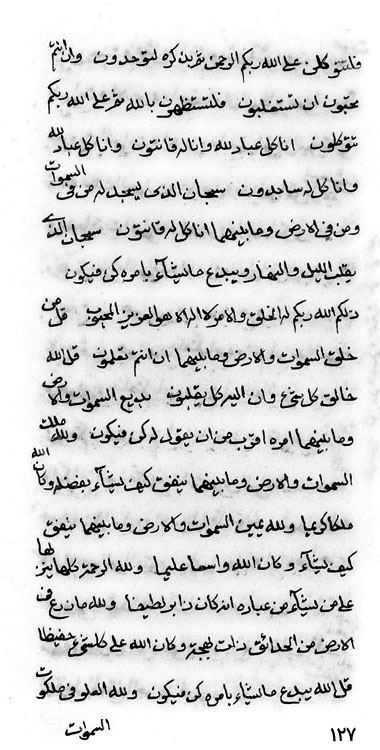 فلتتوكلن على الله ربكم الرحمن ثم بذكره لتوحدون وان انتم
تحبون ان تستغلبون فلتستظهرن بالله ثم على الله ربكم
تتوكلون انا كل عباد لله وانا له قانتون وانا كل عباد لله
وانا كل له ساجدون سبحان الذى يسجد له من فى السموات
ومن فى الارض وما بينهما انا كل له قانتون سبحان الذى
يقلب الليل والنهار ويبدع ما يشآء بامره كن فيكون
ذلكم الله ربكم له الخلق والامر لا اله الا هو العزيز المحبوب قل من
خلق السموات والارض وما بينهما ان انتم تعلمون قل الله
خالق كل شىء وان اليه كل يقلبون بديع السموات والارض
وما بينهما امره اقرب من ان يقول له كن فيكون ولله ملك
السموات والارض وما بينهما ينفق كيف يشآء بفضله وكان الله
ملكا كريما ولله يمين السموات والارض وما بينهما ينفق
كيف يشآء وكان الله واسعا عليما ولله الرحمة كلها ينزلها
على من يشآء من عباده انه كان ذابر لطيفا ولله ما زرع فى
الارض من الحدائق ذات بهجة وكان الله على كل شىء حفيظا
قل الله يبدع ما يشآء بامره كن فيكون ولله العلو فى ملكوت
السموات
١٢٧